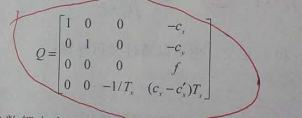 Q = [ 1 0 0 -c_x
0 1 0 -c_y
0 0 0 f
0 0 -1/T_x (c_x - c'_x)T_x ]